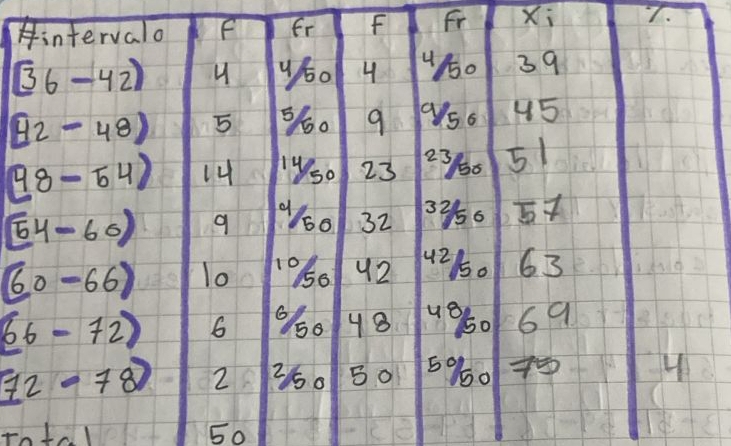 #intervalo f fr F Fr Xi %.
[36-42) 4 4/50 4 4/50 39
[42-48) 5 5/50 9 9/50 45
[48-54) 14 14/50 23 23/50 51
[54-60) 9 9/50 32 32/50 57
[60-66) 10 10/50 42 42/50 63
[66-72) 6 6/50 48 48/50 69
[72-78) 2 2/50 50 50/50 75 4
Total 50